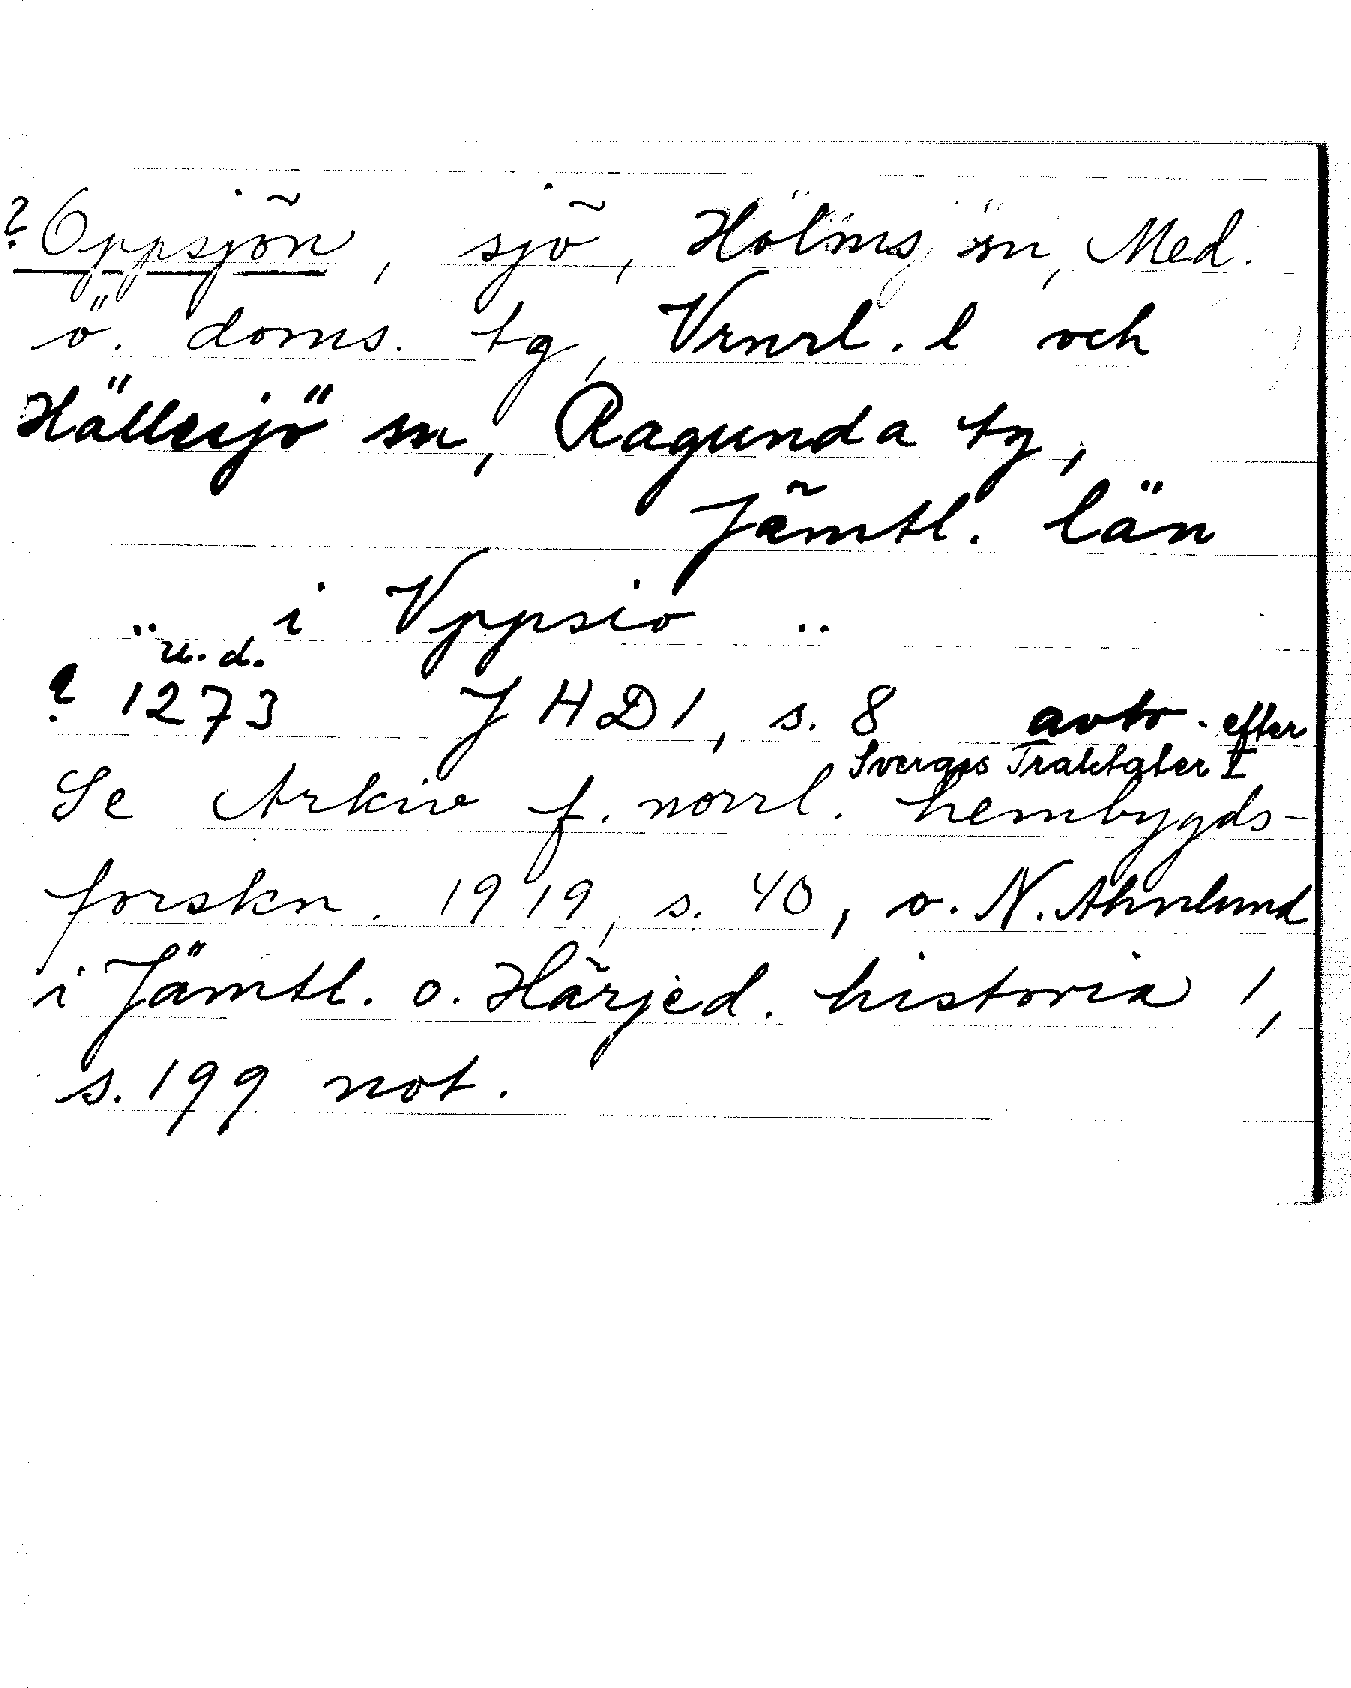 ? Oppsjön, sjö, Hölms sn, Med.
ö. doms. tg, Vrnrl. l och
Hällesjö sn, Ragunda tg,
Jämtl. län
.. i Vppsio ..
u. d.
? 1273 JHD 1, s. 8 avtr. efter
Sverges Traktater I
Se Arkiv f. norrl. hembygds-
forskn. 1919, s. 40, o. N. Ahnlund
i Jämtl. o. Härjed. historia 1,
s. 199 not.